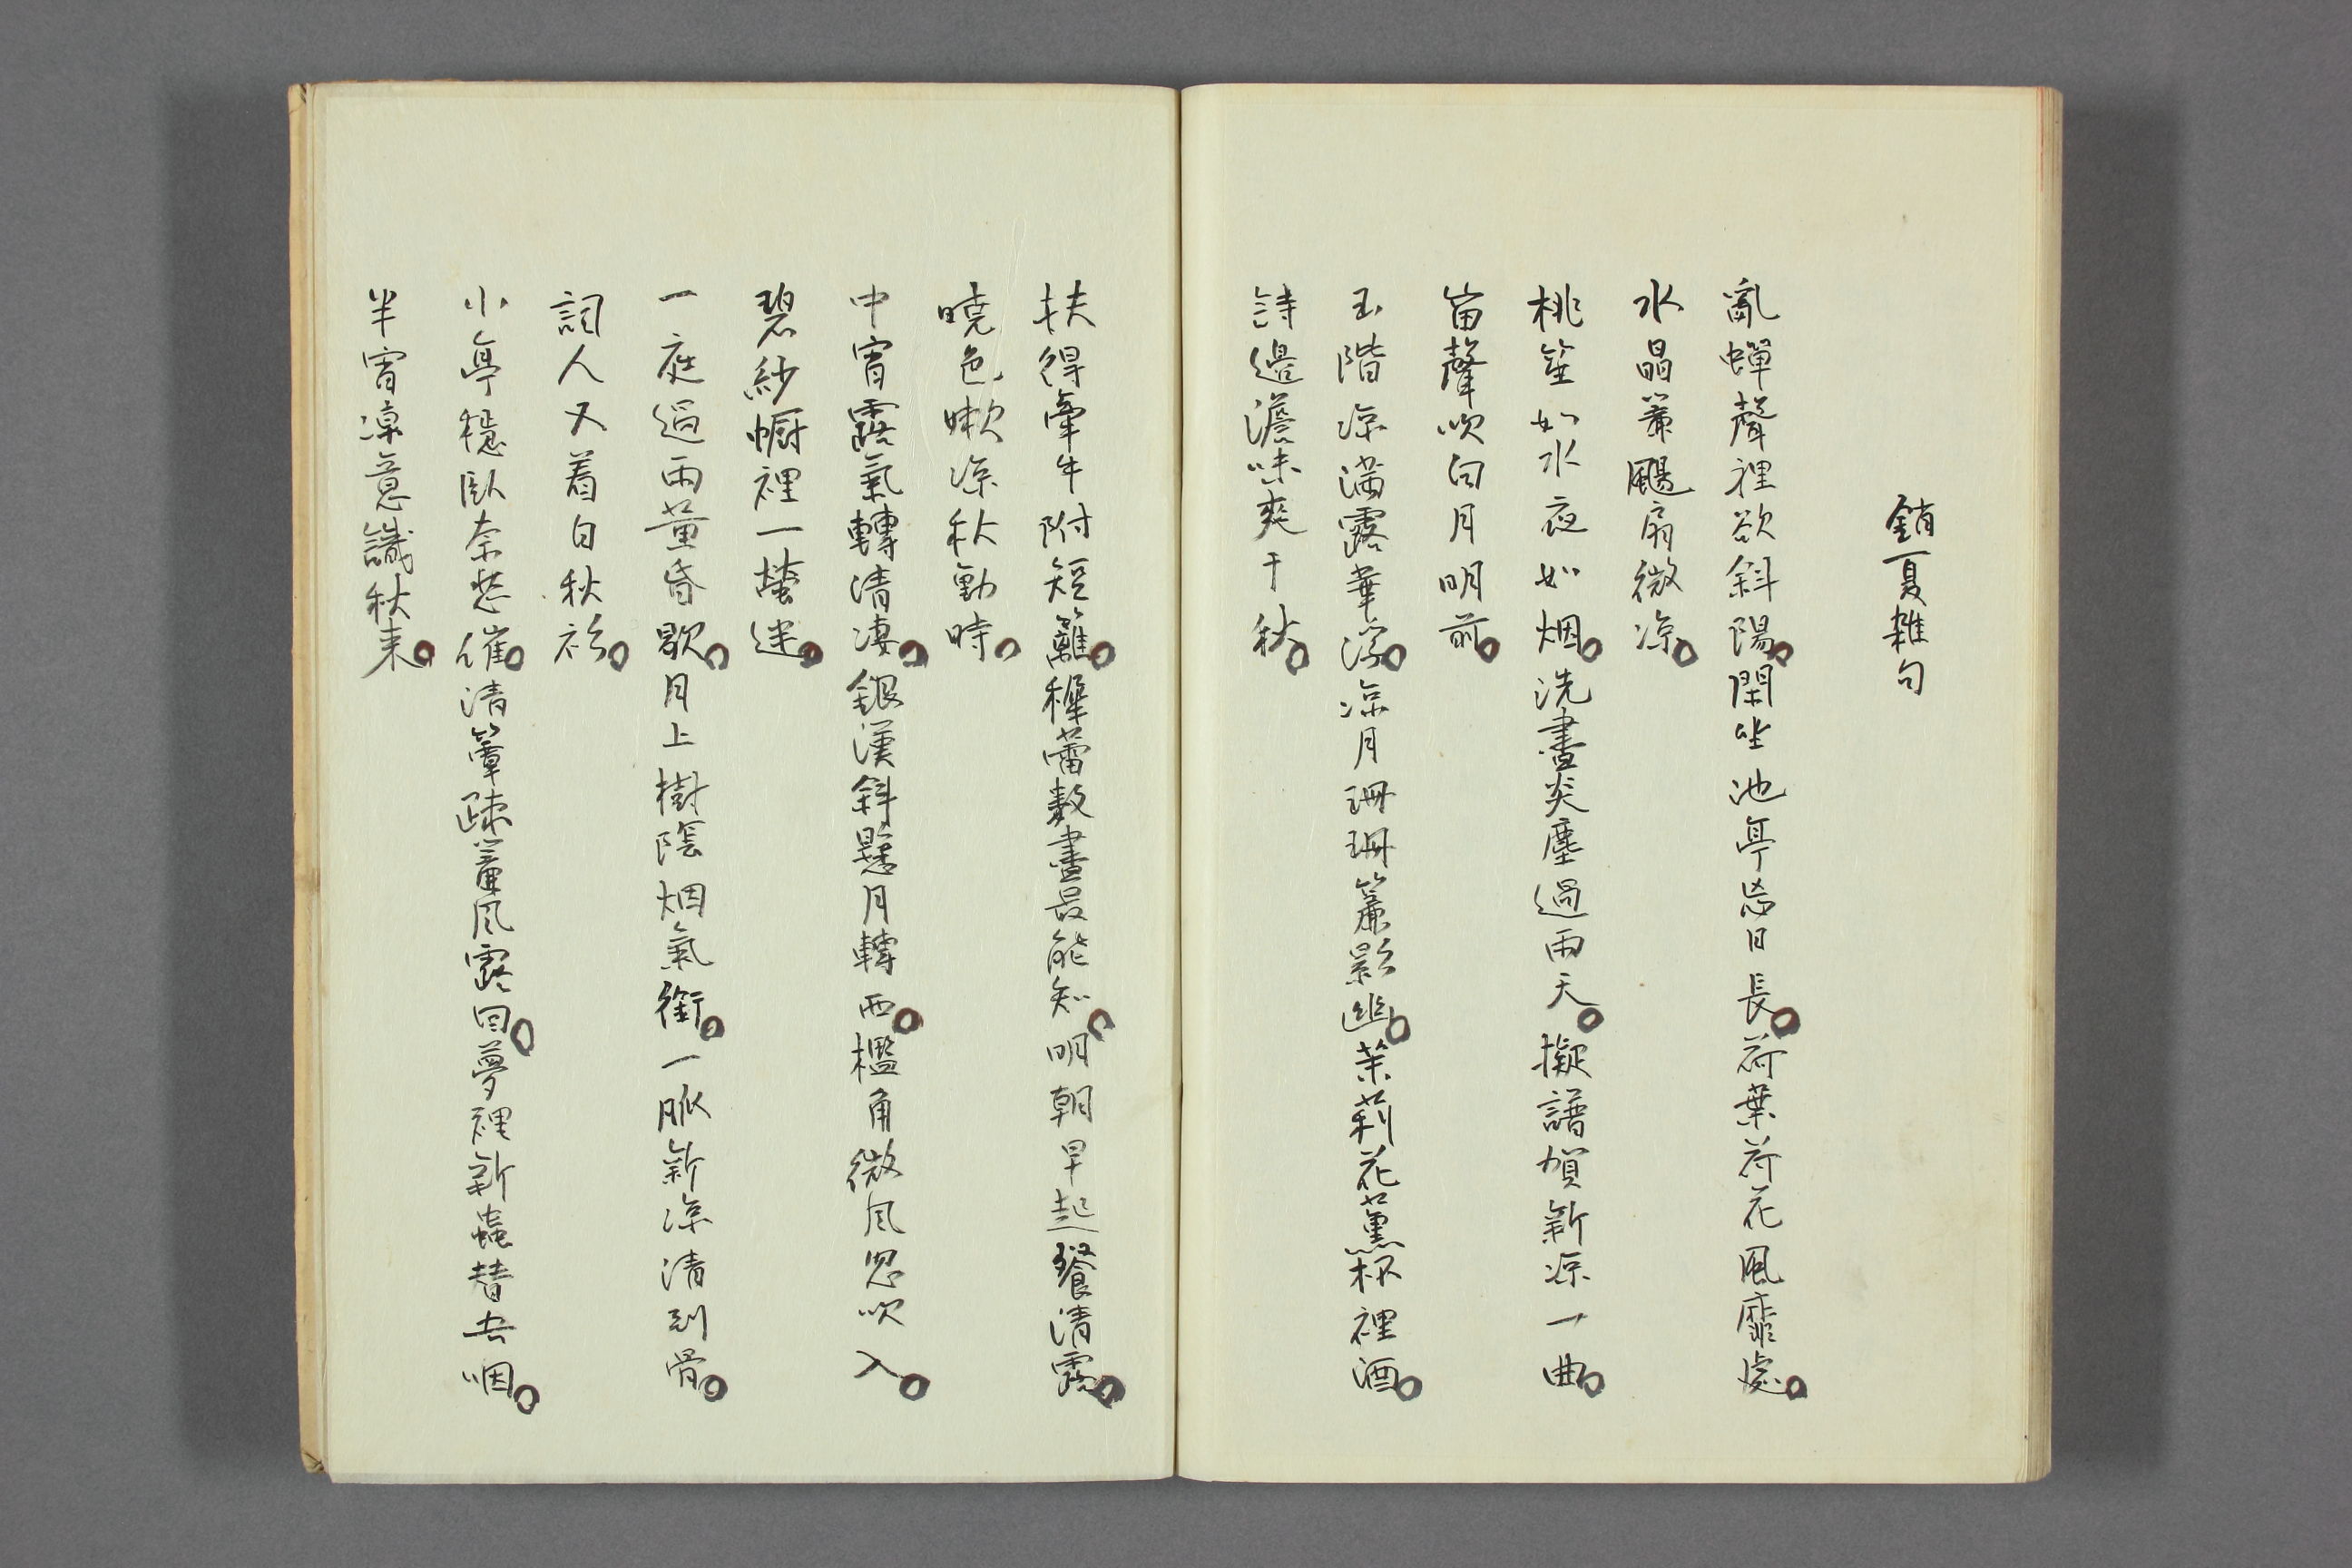 銷夏雜句
亂蟬聲裡欲斜陽。閑坐池亭忘日長。荷葉荷花風靡處。
水晶簾颺扇微涼。
桃笙如水夜如烟。洗盡炎塵過雨天。擬譜賀新涼一曲。
笛聲吹向月明前。
玉階涼滿露華浮。涼月珊珊簾影幽。茉莉花薰杯裡酒。
詩邊澹味爽于秋。
扶得牽牛附短籬。穉蕾數盡最能知。明朝早起餐清露。
曉色嫩涼秋動時。
中宵露氣轉清淒。銀漢斜懸月轉西。檻角微風忽吹入。
碧紗幮裡一螢迷。
一庭過雨黃昏歇。月上樹陰烟氣銜。一脈新涼清到骨。
詞人又着白秋衫。
小亭穩臥奈愁催。清簟疎簾風露回。夢裡新蟲替去咽。
半宵涼意識秋來。